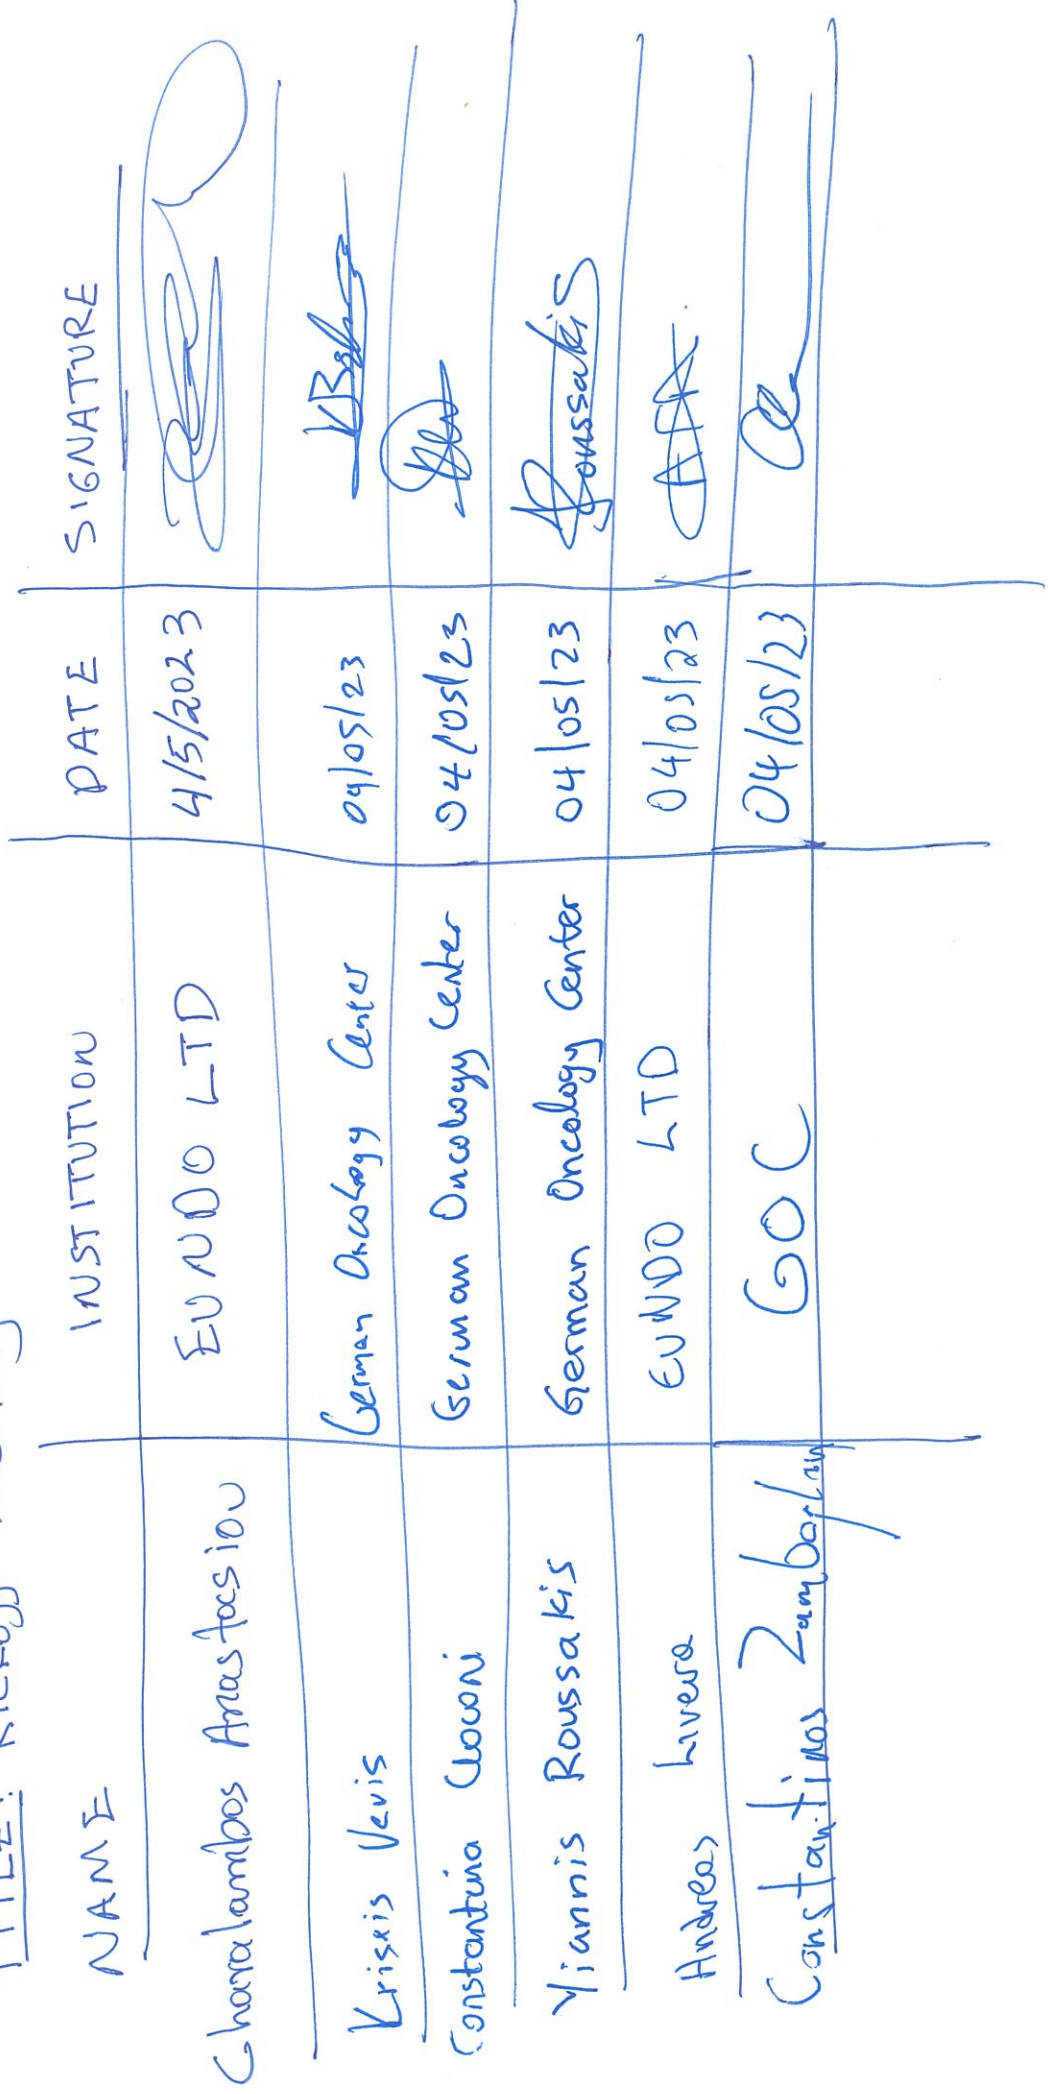 TITLE:
NAME INSTITUTION DATE SIGNATURE
Charalambos Anastasiou EUNDO LTD 4/5/2023
Kriseis Vevis German Oncology Center 04/05/23
Constantina Cloconi German Oncology Center 04/05/23
Yiannis Roussakis German Oncology Center 04/05/23 Roussakis
Andreas Livera EUNDO LTD 04/05/23
Constantinos GOC 04/05/23